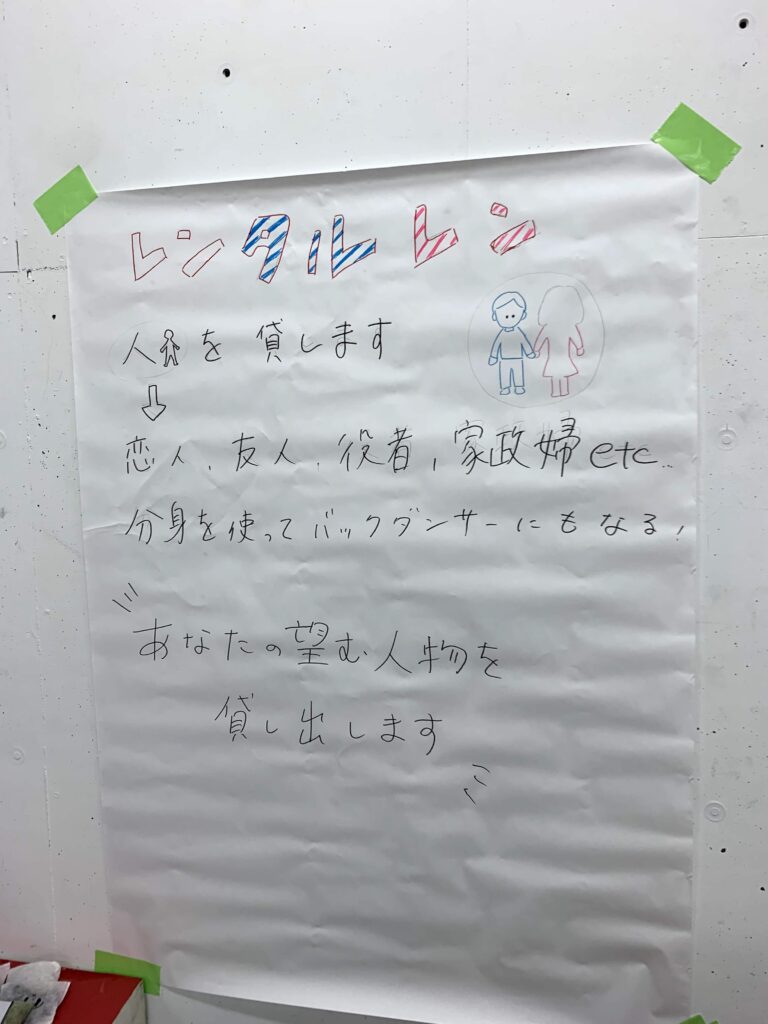 レンタルレン
人を貸します
恋人、友人、役者、家政婦etc...
分身を使ってバックダンサーにもなる!
あなたの望む人物を
貸し出します